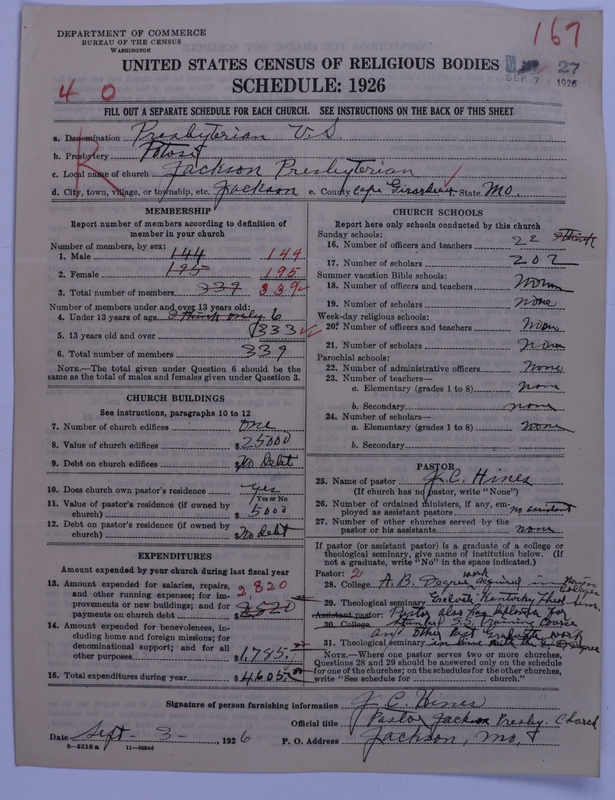 DEPARTMENT OF COMMERCE
BUREAU OF THE CENSUS
WASHINGTON
167
UNITED STATES CENSUS OF RELIGIOUS BODIES
27
SEP 7 1926
SCHEDULE: 1926
4 0
FILL OUT A SEPARATE SCHEDULE FOR EACH CHURCH. SEE INSTRUCTIONS ON THE BACK OF THIS SHEET
a. Denomination Presbyterian U.S.
b. Presbytery Potosi
R
c. Local name of church Jackson Presbyterian
d. City, town, village, or township, etc. Jackson e. County Cape Girardeau State Mo.
MEMBERSHIP
Report number of members according to definition of member in your church
Number of members, by sex:
1. Male 144 144
2. Female 195 195
3. Total number of members 339 339
Number of members under and over 13 years old:
4. Under 13 years of age I think only 6
5. 13 years old and over 333
6. Total number of members 339
NOTE.—The total given under Question 6 should be
same as the total of males and females given under Question 3.
CHURCH BUILDINGS
See instructions, paragraphs 10 to 12
7. Number of church edifices One
8. Value of church edifices $25000
9. Debt on church edifices $No Debt
10. Does church own pastor's residence yes
Yes or No
11. Value of pastor's residence (if owned by
church) $5000
12. Debt on pastor's residence (if owned by
church) $No debt
EXPENDITURES
Amount expended by your church during last fiscal year
13. Amount expended for salaries, repairs,
and other running expenses; for im-
provements or new buildings; and for
payments on church debt 2,820 $2520
14. Amount expended for benevolences, in-
cluding home and foreign missions; for
denominational support; and for all
other purposes $1,785.
15. Total expenditures during year $4605
CHURCH SCHOOLS
Report here only schools conducted by this church
Sunday schools:
16. Number of officers and teachers 22
17. Number of scholars 202
Summer vacation Bible schools:
18. Number of officers and teachers None
19. Number of scholars None
Week-day religious schools:
20. Number of officers and teachers None
21. Number of scholars None
Parochial schools:
22. Number of administrative officers None
23. Number of teachers—
a. Elementary (grades 1 to 8) None
b. Secondary none
24. Number of scholars—
a. Elementary (grades 1 to 8) None
b. Secondary
PASTOR
25. Name of pastor J. C. Hines
(If church has no pastor, write "None")
26. Number of ordained ministers, if any, em-
ployed as assistant pastors no assistant
27. Number of other churches served by the
pastor or his assistants none
If pastor (or assistant pastor) is a graduate of a college or
theological seminary, give name of institution below. (If
not a graduate, write "No" in the space indicated.)
Pastor: 2
28. College A.B. Degree work
29. Theological seminary Graduate Kentucky Theol. Sem.
Assistant pastor: Pastor also has Diploma for
30. College Standard S.S. Training Course
and other Post Graduate work
31. Theological seminary
NOTE.—Where one pastor serves two or more churches,
Questions 28 and 29 should be answered only on the schedule
for one of the churches; on the schedules for the other churches,
write "See schedule for church."
Signature of person furnishing information J. C. Hines
Official title Pastor Jackson Presby. Church
Date Sept - 3 -, 1926 P. O. Address Jackson, Mo,
8—5518a 11—9684